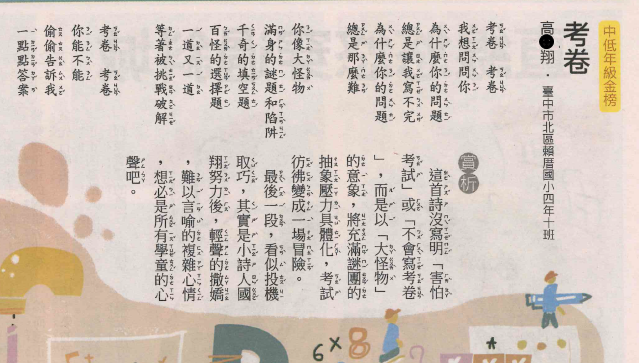 中低年級金榜
考卷
高●翔‧臺中市北區賴厝國小四年十班
考卷 考卷
我想問問你
為什麼你的問題
總是讓我寫不完
為什麼你的問題
總是那麼難
你像大怪物
滿身的謎題和陷阱
千奇的填空題
百怪的選擇題
一道又一道
等著被挑戰破解
考卷 考卷
你能不能
偷偷告訴我
一點點答案
賞析
這首詩沒寫明「害怕
考試」或「不會寫考卷
」,而是以「大怪物」
的意象,將充滿謎團的
抽象壓力具體化,考試
彷彿變成一場冒險。
最後一段,看似投機
取巧,其實是小詩人國
翔努力後,輕聲的撒嬌
,難以言喻的複雜心情
,想必是所有學童的心
聲吧。
6×8